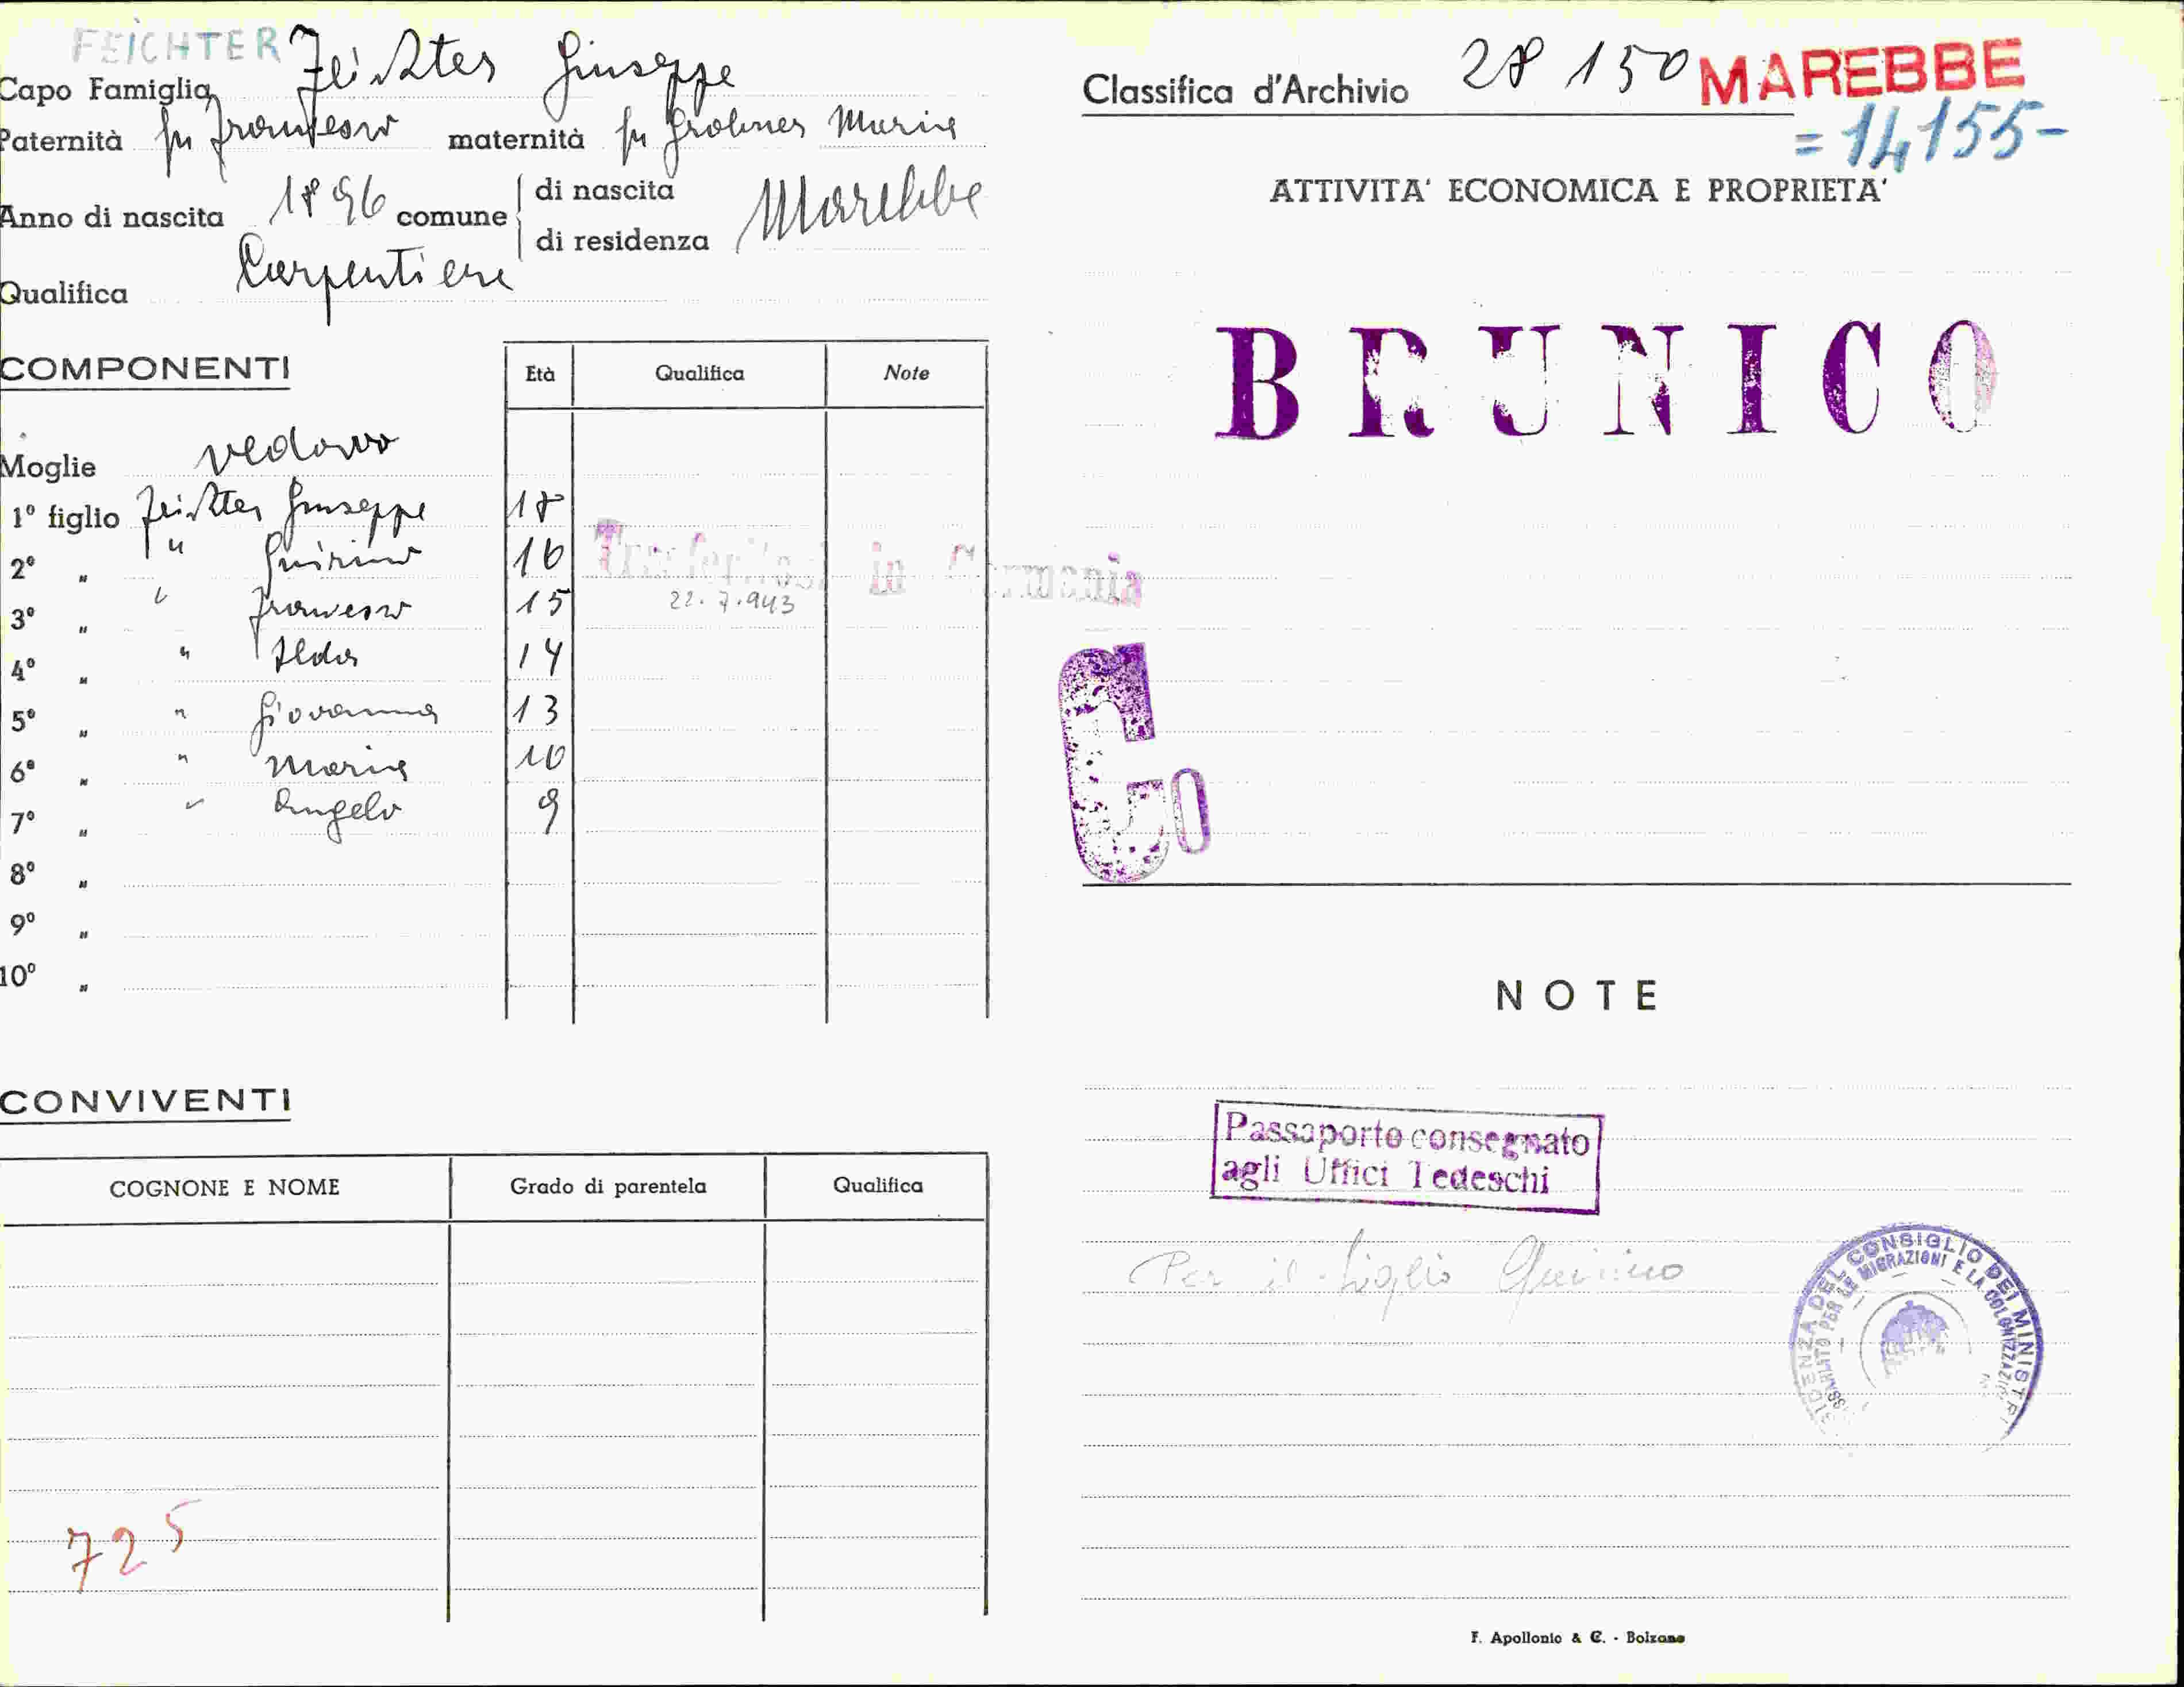 FEICHTER
Capo Famiglia Feichter Giuseppe
Paternità fu Francesco maternità fu Grobner Maria
Anno di nascita 1896 comune di nascita di residenza Marebbe
Qualifica Carpentiere
COMPONENTI Età Qualifica Note
Moglie vedovo
1º figlio Feichter Giuseppe 18
2º „ " Quirino 16 Trasferitosi in Germania
3º „ " Francesco 15 22.7.943
4º „ " Ilda 14
5º „ " Giovanna 13
6º „ " Maria 10
7º „ " Angelo 9
8º „
9º „
10º „
CONVIVENTI
COGNONE E NOME Grado di parentela Qualifica
725
Classifica d'Archivio 28150 MAREBBE
=14155-
ATTIVITA' ECONOMICA E PROPRIETA'
BRUNICO
G0
NOTE
Passaporto consegnato
agli Uffici Tedeschi
Per il figlio Quirino
IDENZA DEL CONSIGLIO DEI MINISTRI
SSARIATO PER LE MIGRAZIONI E LA COLONIZZAZIO
F. Apollonio & C. - Bolzano